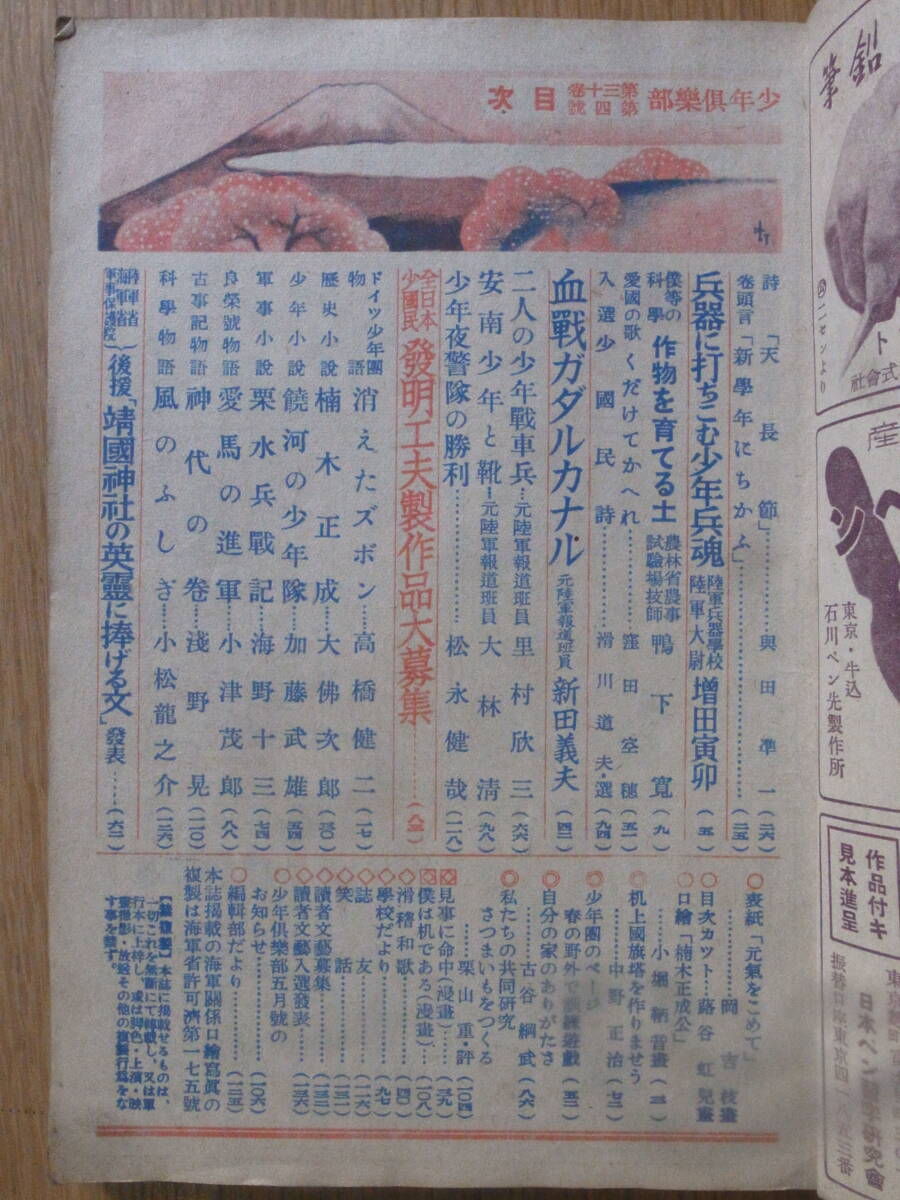 少年俱樂部 第三十卷 第四號 目次
詩「天長節」……與田準一(二六)
卷頭言「新學年にちかふ」……(二五)
兵器に打ちこむ少年兵魂 陸軍兵器學校 陸軍大尉 增田寅卯(五)
僕等の科學 作物を育てる土 農林省農事試驗場技師 鴨下寬(九)
愛國の歌 くだけてかへれ……窪田空穗(五二)
入選少國民詩……滑川道夫・選(九四)
血戰ガダルカナル 元陸軍報道班員 新田義夫(四二)
二人の少年戰車兵…元陸軍報道班員 里村欣三(六六)
安南少年と靴…元陸軍報道班員 大林淸(九八)
少年夜警隊の勝利……松永健哉(一一八)
全日本少國民 發明工夫製作品大募集……(八二)
ドイツ少年團物語 消えたズボン…高橋健二(一七)
歷史小說 楠木正成…大佛次郎(三〇)
少年小說 饒河の少年隊…加藤武雄(五四)
軍事小說 栗水兵戰記…海野十三(七四)
良榮號物語 愛馬の進軍…小津茂郎(八八)
古事記物語 神代の卷…淺野晃(一一〇)
科學物語 風のふしぎ…小松龍之介(一二六)
陸軍省 海軍省 軍事保護院 後援「靖國神社の英靈に捧げる文」發表……(六二)
○表紙「元氣をこめて」
……岡吉枝畫
○目次カツト…蕗谷虹兒畫
○口繪「楠木正成公」
……小堀鞆音畫(三)
○机上國旗塔を作りませう
……中野正治(七三)
○少年團のページ
春の野外で訓練遊戲(五三)
◎自分の家のありがたさ
……古谷綱武(八六)
◎私たちの共同研究
さつまいもをつくる
……栗山重・評(一〇四)
見事に命中(漫畫)…(三九)
僕は机である(漫畫)…(一〇八)
◇滑稽和歌……(四一)
◇學校だより……(九七)
◇誌友……(一一六)
◇笑話……(一三一)
◇讀者文藝募集……(一三二)
◇讀者文藝入選發表…(一三六)
○少年俱樂部五月號の
お知らせ……(一〇六)
○編輯部だより……(一三五)
本誌揭載の海軍關係口繪寫眞の
複製は海軍省許可濟第一七五號
【禁複製】本誌に揭載せるものは、
一切これを無斷にて轉載し、又は單
行本に上梓し、或は脚色・上演・映
畫撮影・放送その他の複製行爲をな
す事を禁ず。
鉛筆
ト
式會社
產
ペン
東京・牛込
石川ペン先製作所
作品付キ
見本進呈
日本ペン習字研究會